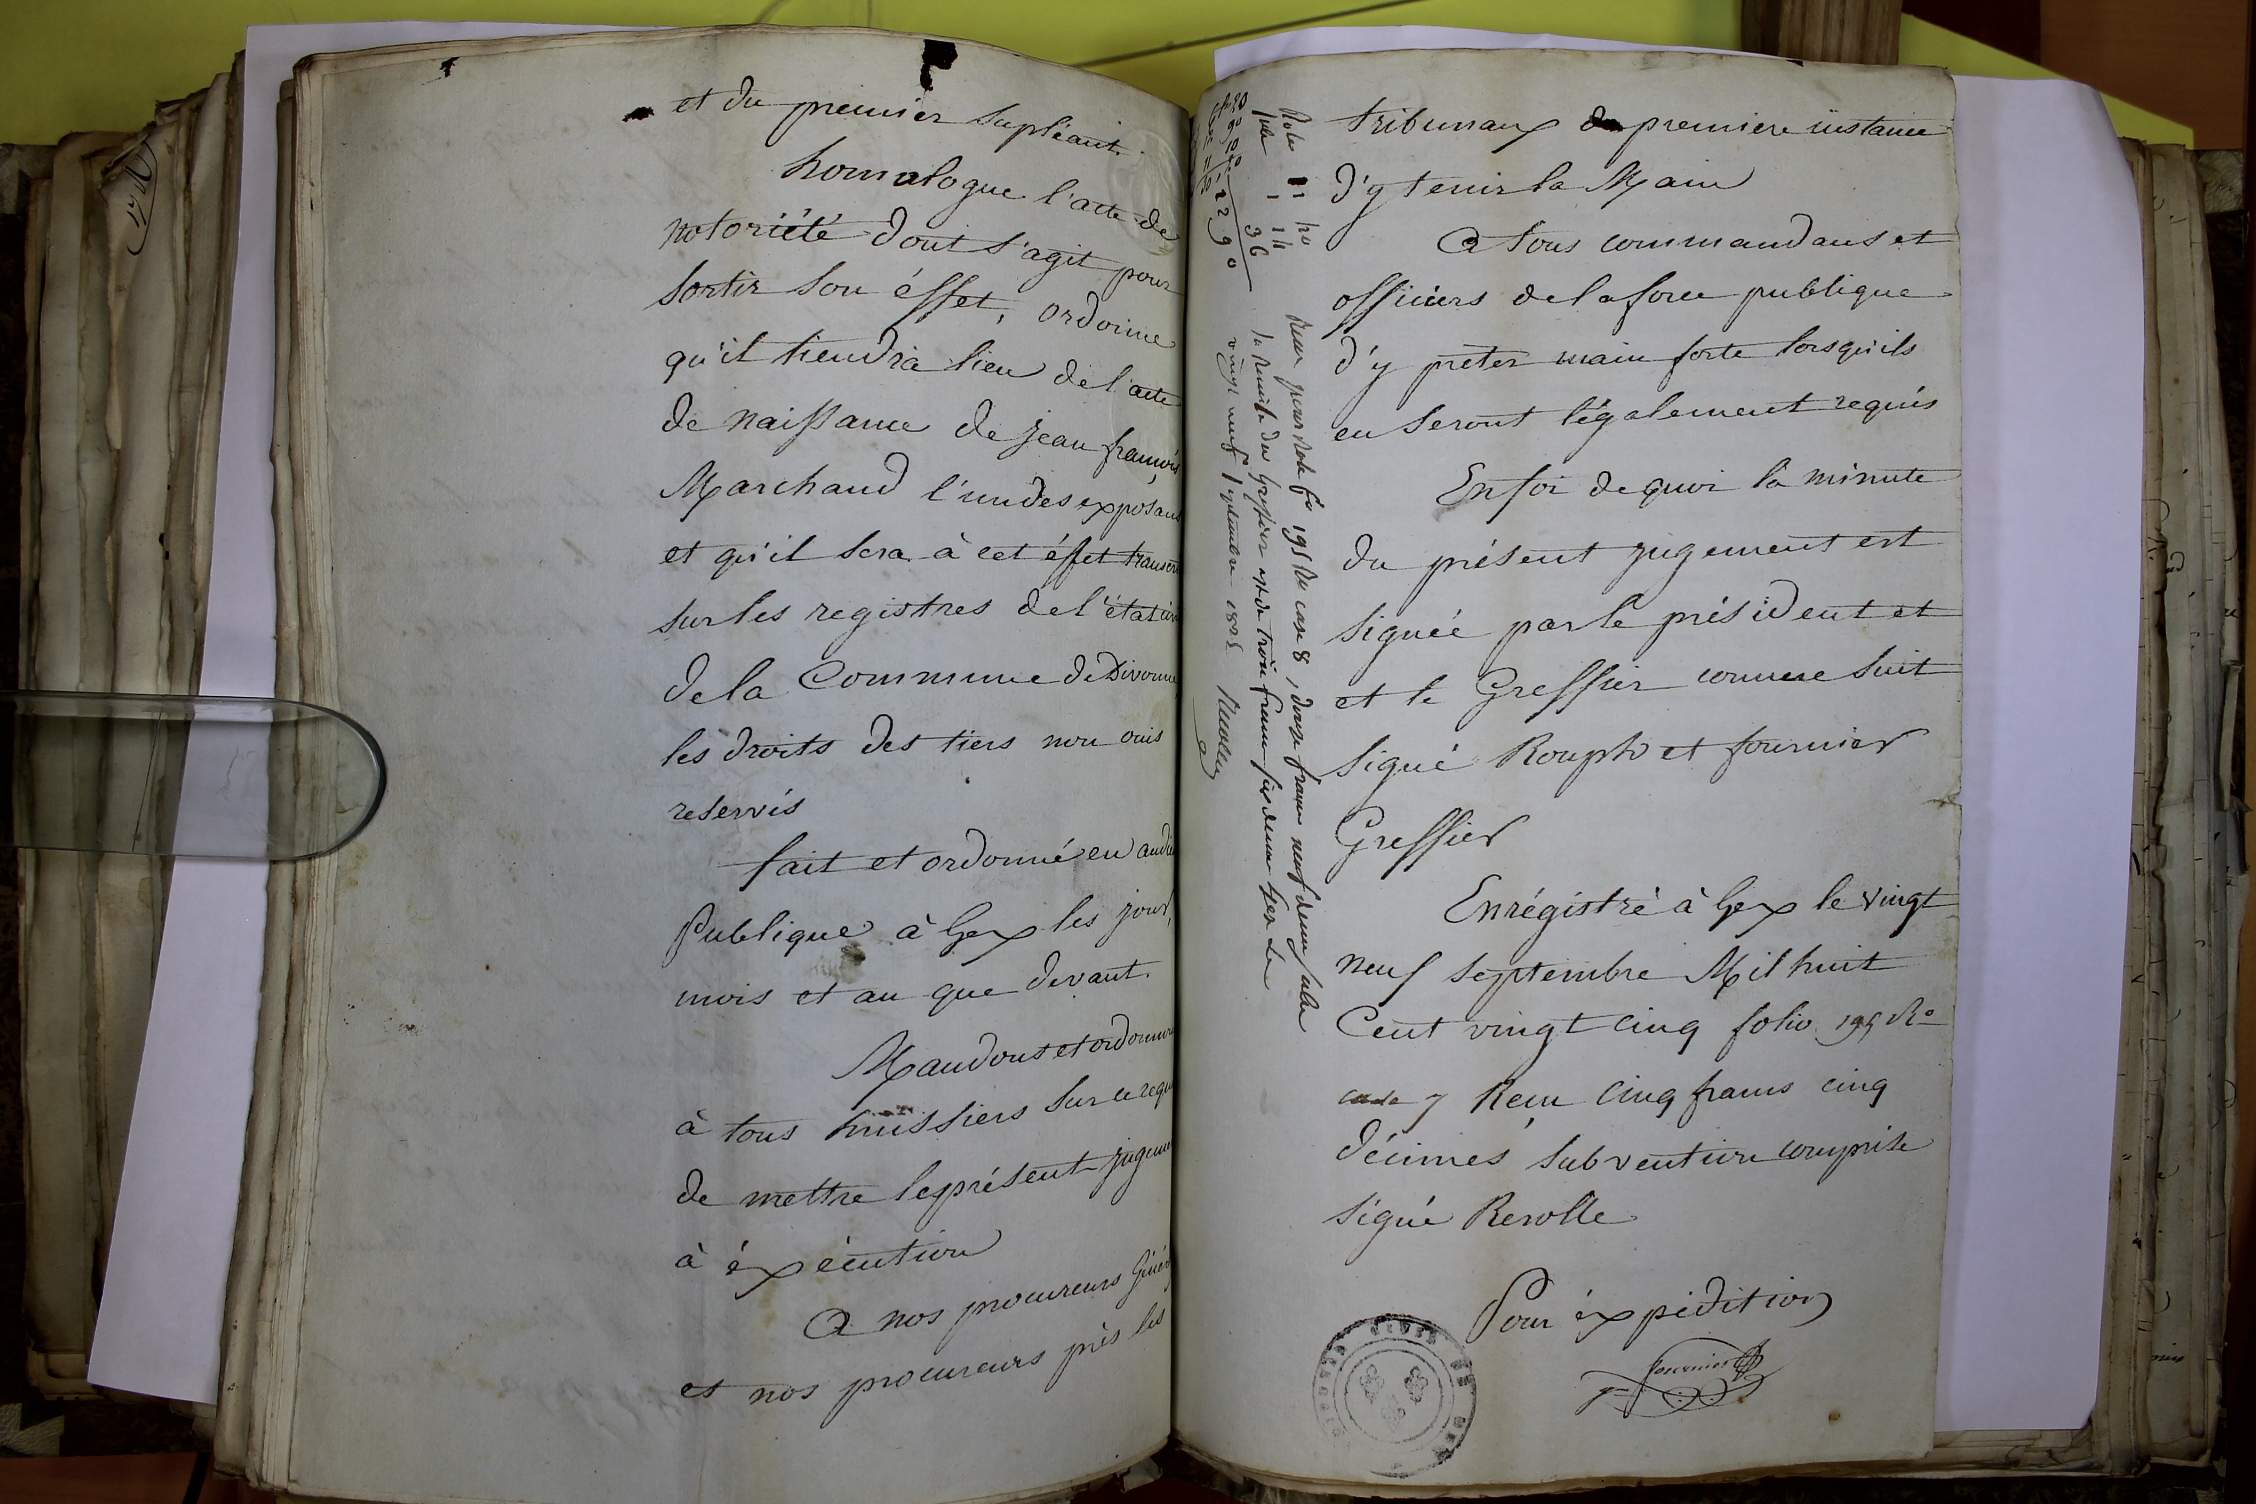 et du premier supléant.
homologue l'acte de
notoriété dont s'agit pour
sortir son éffet, ordonne
qu'il tiendra lieu de l'acte
de naissance de jean françois
Marchand l'un des exposans
et qu'il sera à cet éffet transcrit
sur les registres de l'état civil
de la Commune de Divonne
les droits des tiers non ouis
reservés
fait et ordonné en audie
Publique à Gex les jour,
mois et an que devant.
Mandons et ordonnons
à tous huissiers sur ce requis
de mettre le présent jugement
à éxécution
A nos procureurs Généraux
et nos procureurs près les
tribunaux de premiere instance
d'y tenir la Main
A tous commandans et
officiers de la force publique
d'y prêter main forte lorsqu'ils
en seront légalement requis
En foi de quoi la minute
du présent jugement est
signée par le président et
et le Greffier comme suit
signé Rouph et fournier
Greffier
Enrégistré à Gex le vingt
neuf septembre Mil huit
Cent vingt cinq folio 195 Ro
case 7 Reçu Cinq francs cinq
décimes subvention comprise
signé Revolle
Pour éxpédition
fournier
Reçu pour Role fo 195 Ro case 8, douze francs neuf
la remise du Greffier est de trois francs Gex Le
vingt neuf septembre 1825 Revolle